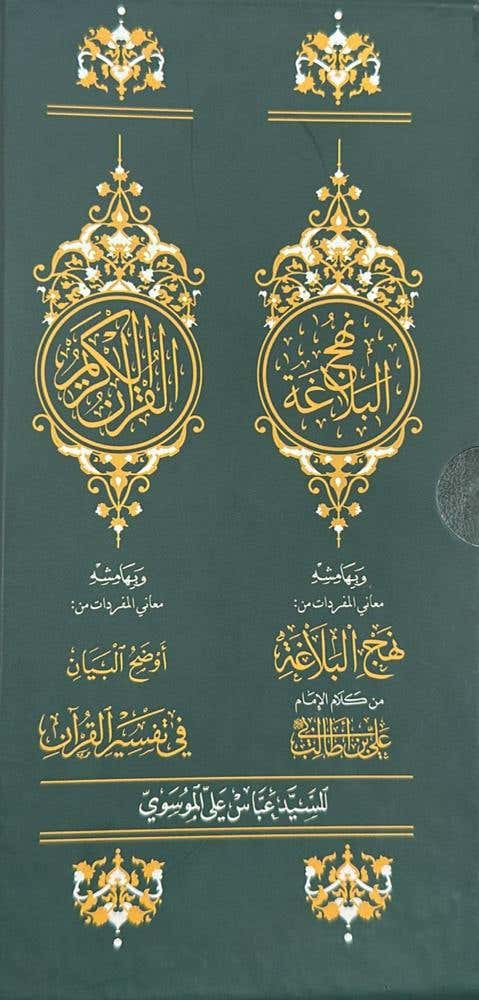 نهج
البلاغة
وبهامشه
معاني المفردات من:
نهج البلاغة
من كلام الإمام
علي بن أبي طالب
القرآن الكريم
وبهامشه
معاني المفردات من:
أوضح البيان
في تفسير القرآن
للسيد عباس علي الموسوي